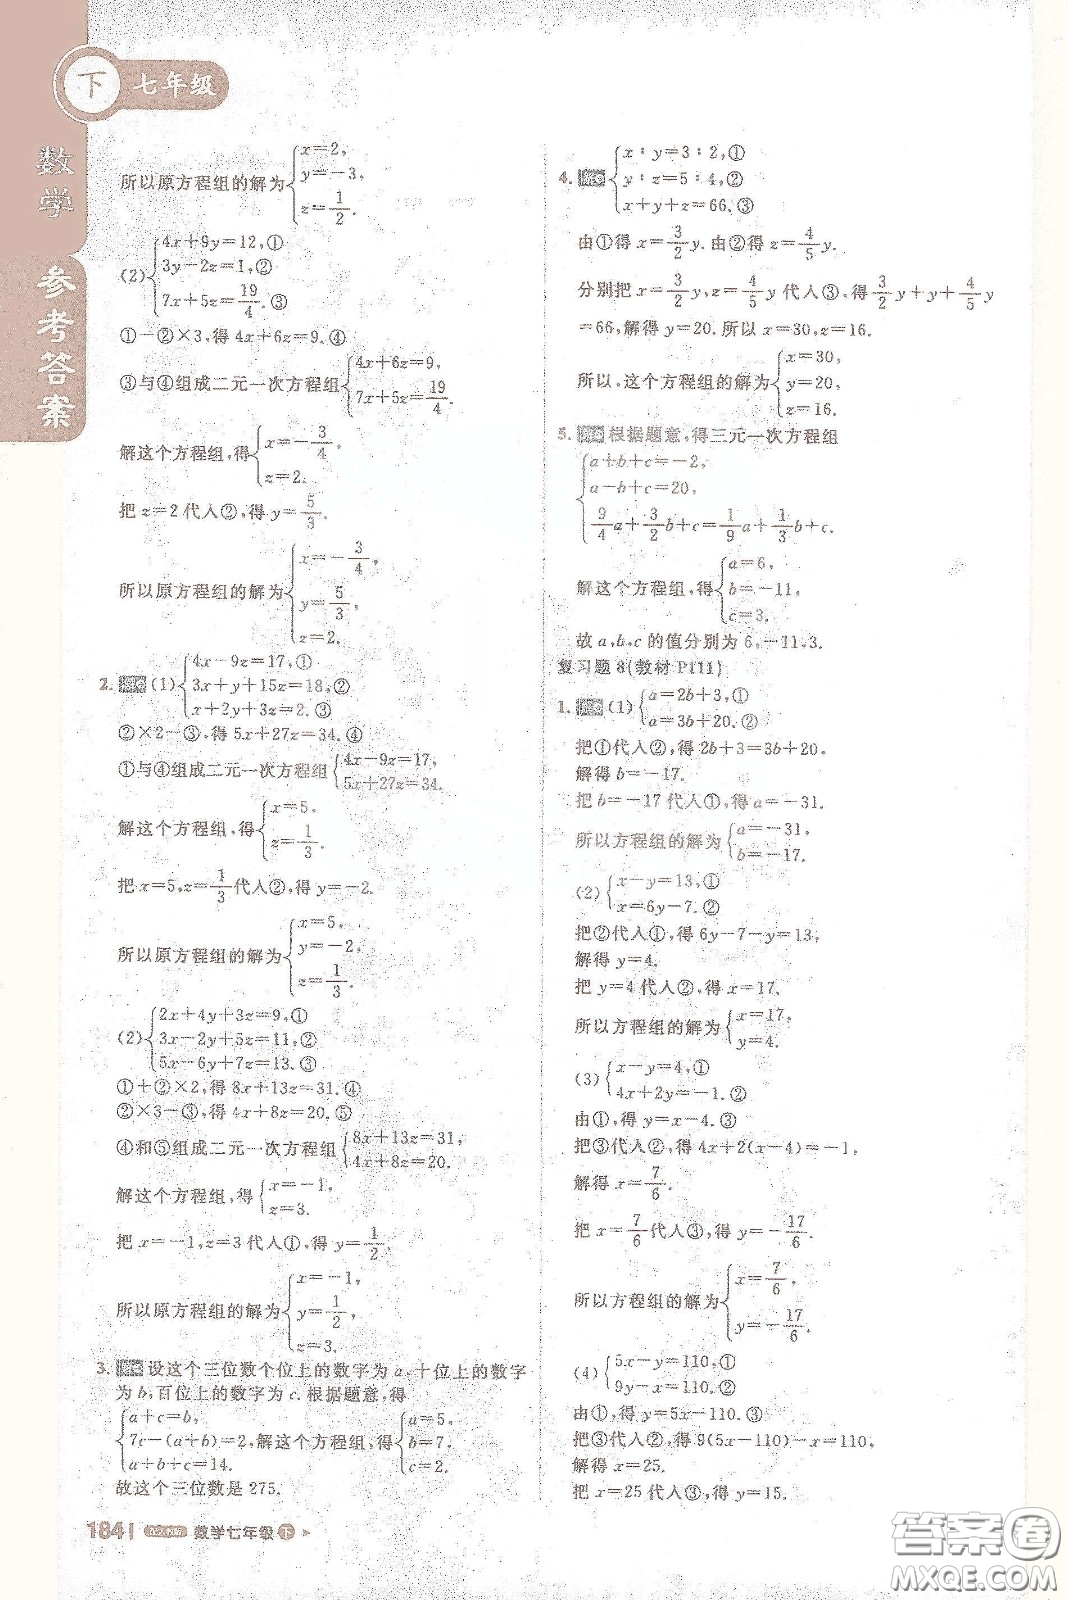 下 七年级
数学
参考答案
所以原方程组的解为{x=2, y=-3, z=1/2.
(2){4x+9y=12,① 3y-2z=1,② 7x+5z=19/4.③
①-②×3,得4x+6z=9.④
③与④组成二元一次方程组{4x+6z=9, 7x+5z=19/4.
解这个方程组,得{x=-3/4, z=2.
把z=2代入②,得y=5/3.
所以原方程组的解为{x=-3/4, y=5/3, z=2.
2. 解:(1){4x-9z=17,① 3x+y+15z=18,② x+2y+3z=2.③
②×2-③,得5x+27z=34.④
①与④组成二元一次方程组{4x-9z=17, 5x+27z=34.
解这个方程组,得{x=5, z=1/3.
把x=5,z=1/3代入②,得y=-2.
所以原方程组的解为{x=5, y=-2, z=1/3.
(2){2x+4y+3z=9,① 3x-2y+5z=11,② 5x-6y+7z=13.③
①+②×2,得8x+13z=31.④
②×3-③,得4x+8z=20.⑤
④和⑤组成二元一次方程组{8x+13z=31, 4x+8z=20.
解这个方程组,得{x=-1, z=3.
把x=-1,z=3代入①,得y=1/2.
所以原方程组的解为{x=-1, y=1/2, z=3.
3. 解:设这个三位数个位上的数字为a,十位上的数字
为b,百位上的数字为c.根据题意,得
{a+c=b, 7c-(a+b)=2, a+b+c=14. 解这个方程组,得{a=5, b=7, c=2.
故这个三位数是275.
4. 解:{x:y=3:2,① y:z=5:4,② x+y+z=66.③
由①得x=3/2y.由②得z=4/5y.
分别把x=3/2y,z=4/5y代入③,得3/2y+y+4/5y
=66,解得y=20.所以x=30,z=16.
所以,这个方程组的解为{x=30, y=20, z=16.
5. 解:根据题意,得三元一次方程组
{a+b+c=-2, a-b+c=20, 9/4a+3/2b+c=1/9a+1/3b+c.
解这个方程组,得{a=6, b=-11, c=3.
故a,b,c的值分别为6,-11,3.
复习题8(教材P111)
1. 解:(1){a=2b+3,① a=3b+20.②
把①代入②,得2b+3=3b+20.
解得b=-17.
把b=-17代入①,得a=-31.
所以方程组的解为{a=-31, b=-17.
(2){x-y=13,① x=6y-7.②
把②代入①,得6y-7-y=13,
解得y=4.
把y=4代入②,得x=17.
所以方程组的解为{x=17, y=4.
(3){x-y=4,① 4x+2y=-1.②
由①,得y=x-4.③
把③代入②,得4x+2(x-4)=-1,
解得x=7/6.
把x=7/6代入③,得y=-17/6.
所以方程组的解为{x=7/6, y=-17/6.
(4){5x-y=110,① 9y-x=110.②
由①,得y=5x-110.③
把③代入②,得9(5x-110)-x=110,
解得x=25.
把x=25代入③,得y=15.
184 数学七年级 下
答案卷
MXQE.COM